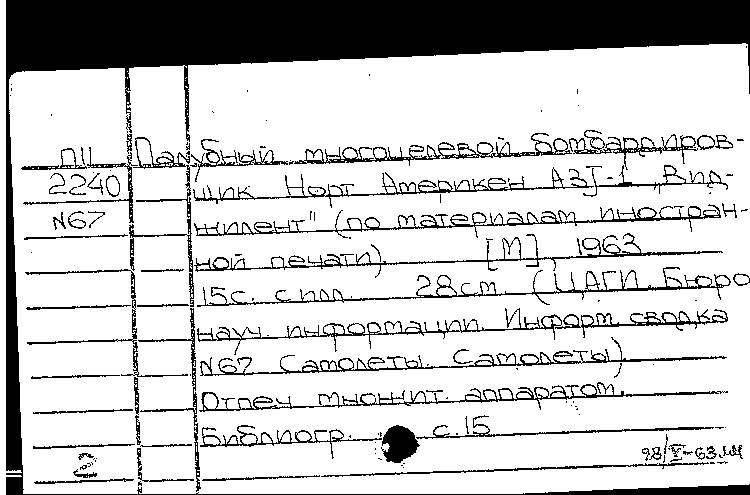 П11 Палубный многоцелевой бомбардиров-
2240 щик Норт Америкен А3J-1 „Вид-
N67 жилент" (по материалам иностран-
ной печати). [М] 1963
15с. с илл. 28см. (ЦАГИ. Бюро
науч. информации. Информ. сводка
N67 Самолеты. Самолеты)
Отпеч множит. аппаратом.
Библиогр. с.15
2 28/V-63